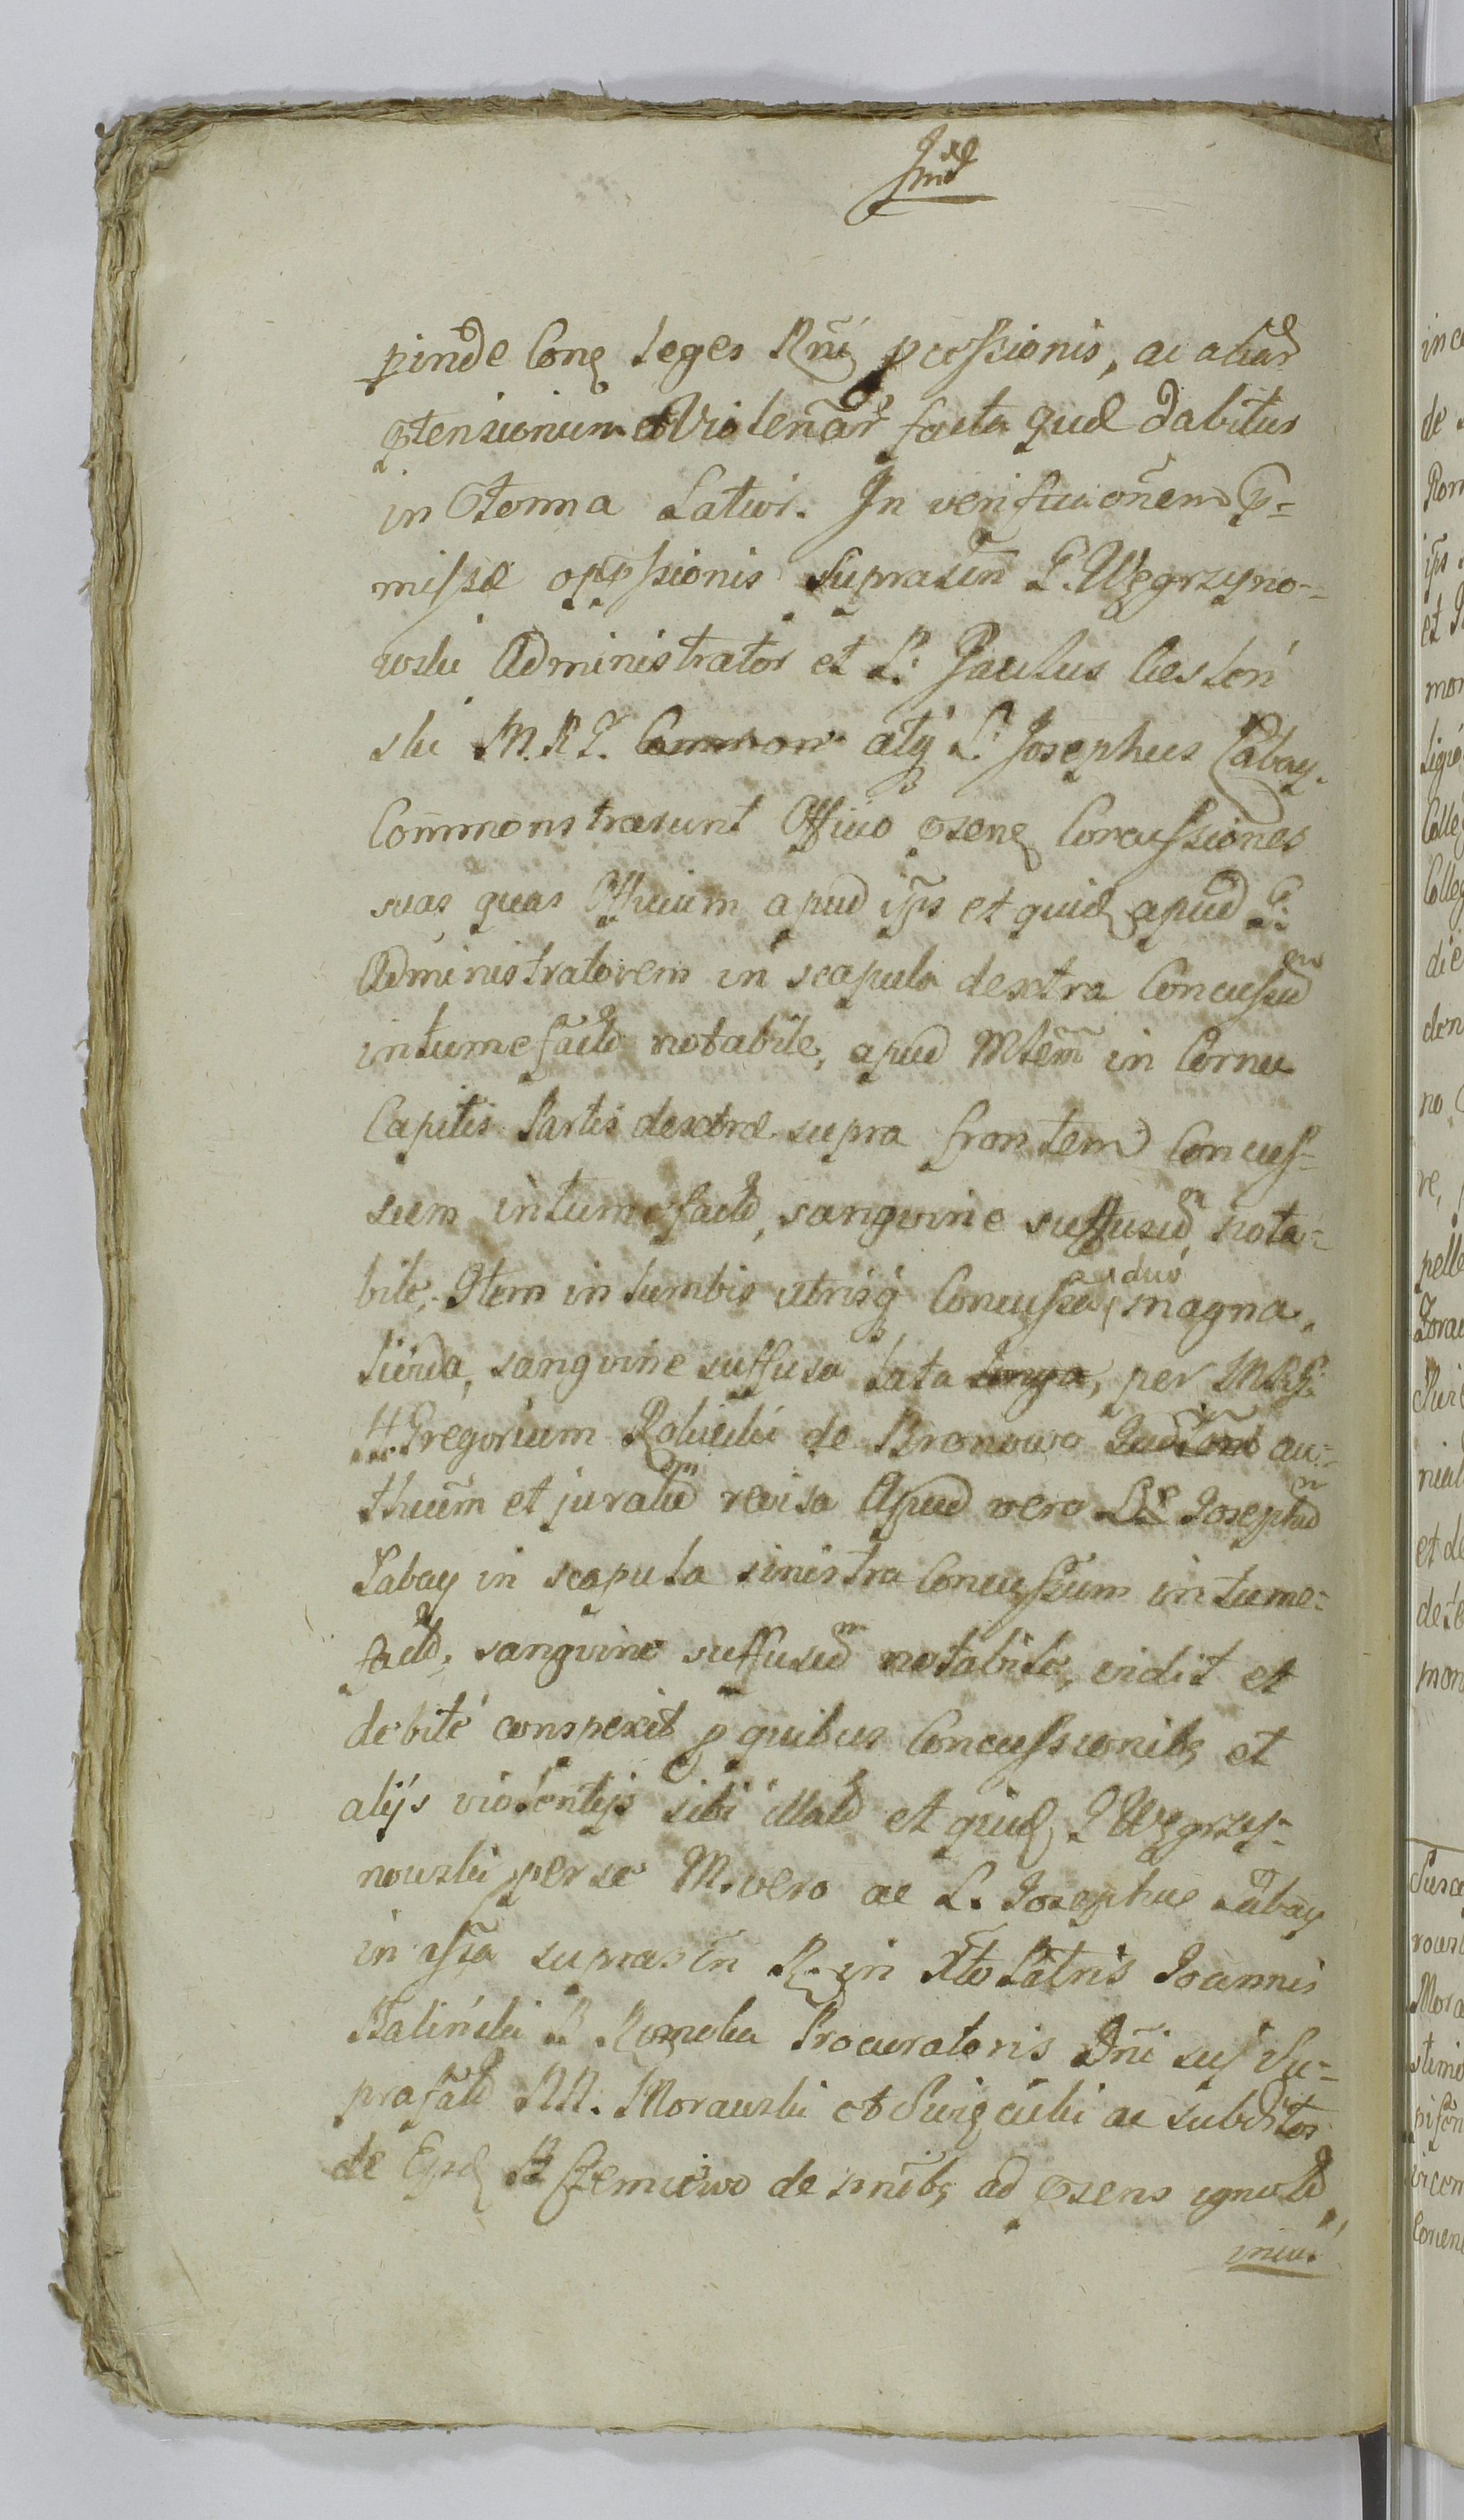 pinde Conę Leges Rñi pcessionis, ac aliar
ptensionum et Violenãr facta quæ dabitur
in Termo Latior. In verificaoñem p=
missæ oppssionis suprascñ G. Węgrzyno=
wski Administrator et L: Paulus Cieslen
ski M.R.J. atq L: Josephus Labay.
Com̃monstrarunt Officio psens Concussiones
suas quas Officium apud ips et quid apud G:
Administratorem in scapula dextra Concussum
intumefactũ notabile, apud Mtẽm in Cornu
Capitis Partis dextræ supra frontem Concus=
sum intumefactũ, sanguine suffusum nota=
bile. Item in lumbis utrisq Concussa duo magna,
livida, sanguine suffusa lata longa, per
Gregorium de Bronowo au=
thticũm et juratum revisa Apud vero Josephum
Labay in scapula sinistra Concussum intume=
factũ, sanguine suffusum notabile, vidit et
debité conspexit p quibus Concussionibȝ et
alijs violentijs sibi illatũ et quid G Węgrzy=
nowski per se M. vero ac L. Josephus Labay
in assã suprascñ R. in Xto Patris Joannis
Kaliński Procuratoris Dñi sui Su=
prafatũ NN. Morawski et ac subditos
de de nñibȝ ad psens ignotũ